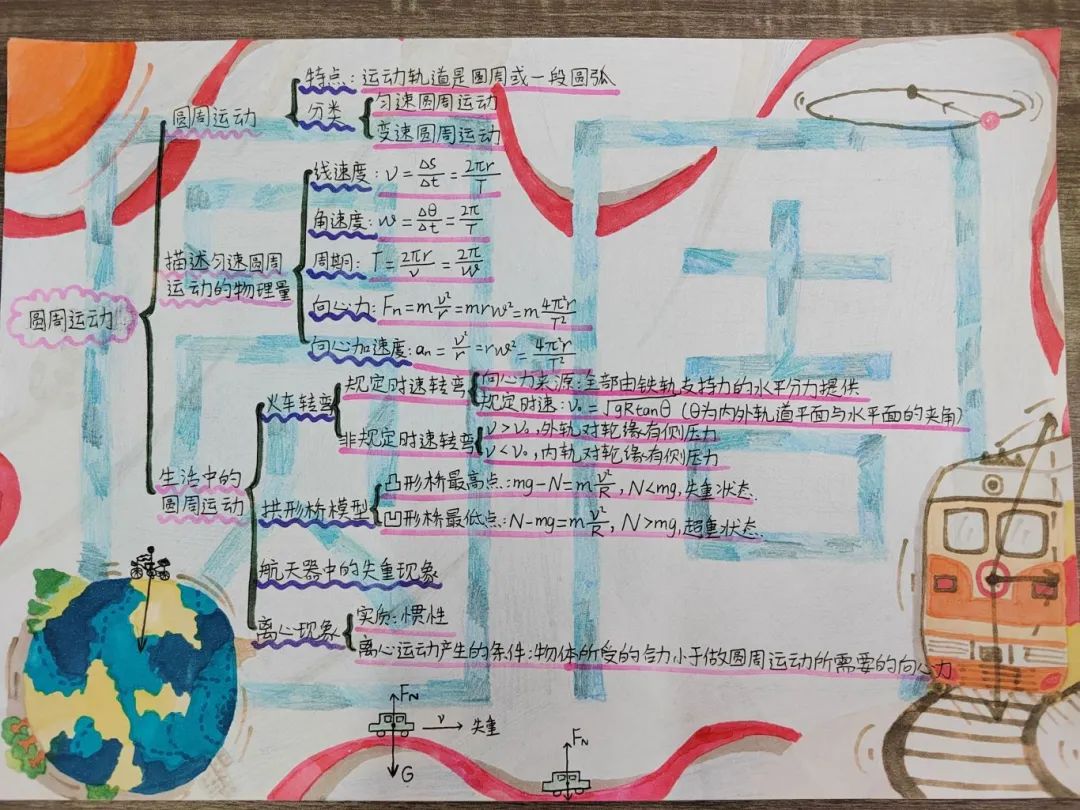 圆周运动
圆周运动
特点：运动轨道是圆周或一段圆弧
分类
匀速圆周运动
变速圆周运动
描述匀速圆周
运动的物理量
线速度：v=Δs/Δt=2πr/T
角速度：w=Δθ/Δt=2π/T
周期：T=2πr/v=2π/w
向心力：Fn=mv²/r=mrw²=m4π²r/T²
向心加速度：an=v²/r=rw²=4π²r/T²
生活中的
圆周运动
火车转弯
规定时速转弯
向心力来源：全部由铁轨支持力的水平分力提供
规定时速：v₀=√gRtanθ（θ为内外轨道平面与水平面的夹角）
非规定时速转弯
v>v₀，外轨对轮缘有侧压力
v<v₀，内轨对轮缘有侧压力
拱形桥模型
凸形桥最高点：mg-N=mv²/R，N<mg，失重状态.
凹形桥最低点：N-mg=mv²/R，N>mg，超重状态.
航天器中的失重现象
离心现象
实质：惯性
离心运动产生的条件：物体所受的合力小于做圆周运动所需要的向心力
FN
v
失重
G
FN